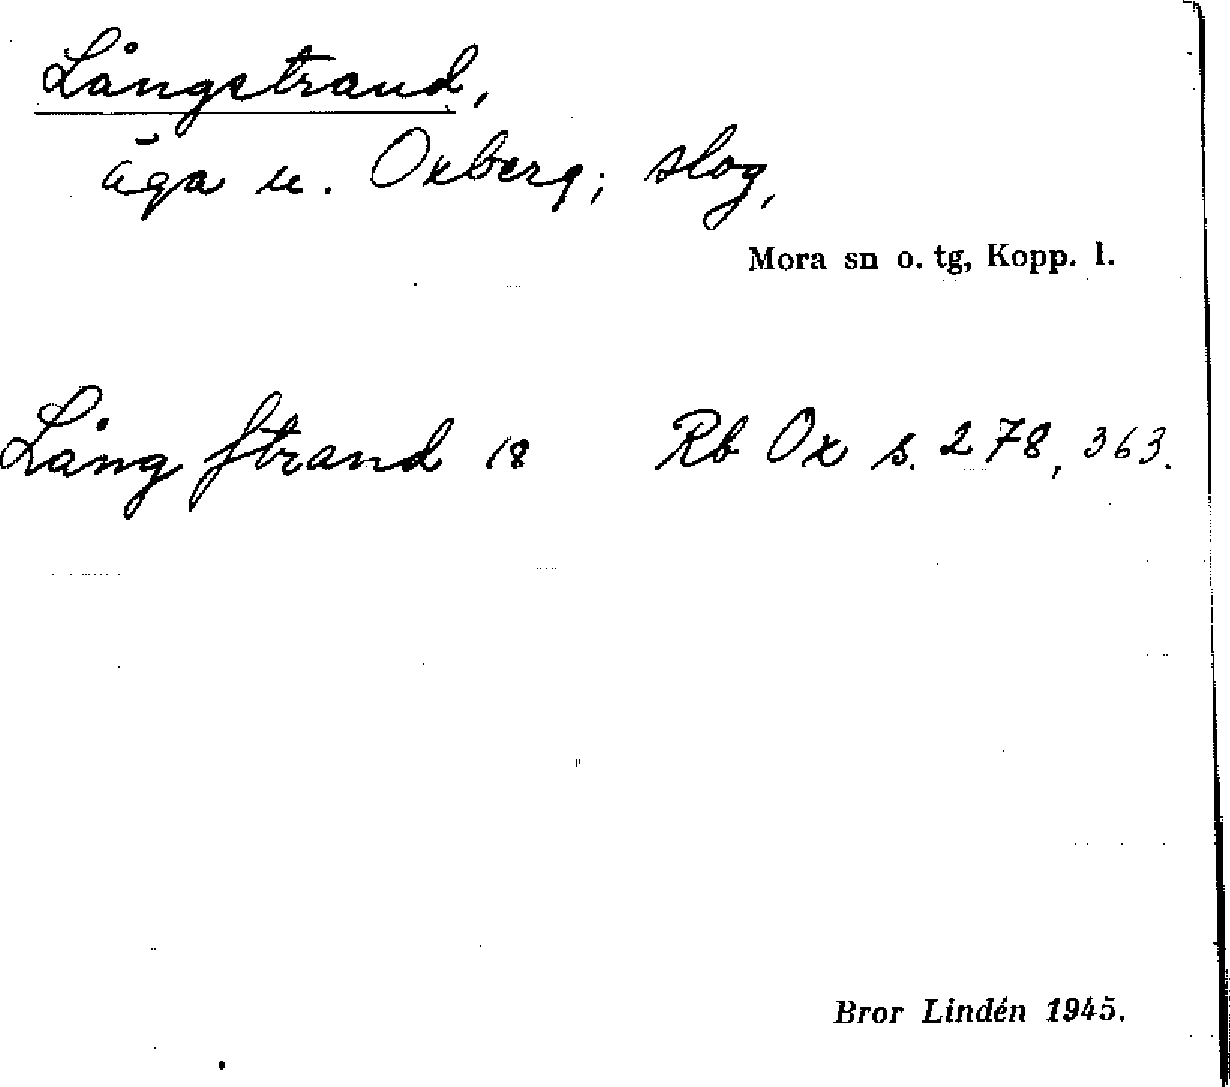 Långstrand,
äga u. Oxberg; slog,
Mora sn o. tg, Kopp. l.
Lång Strand 18 Rb Ox s. 278, 363.
Bror Lindén 1945.